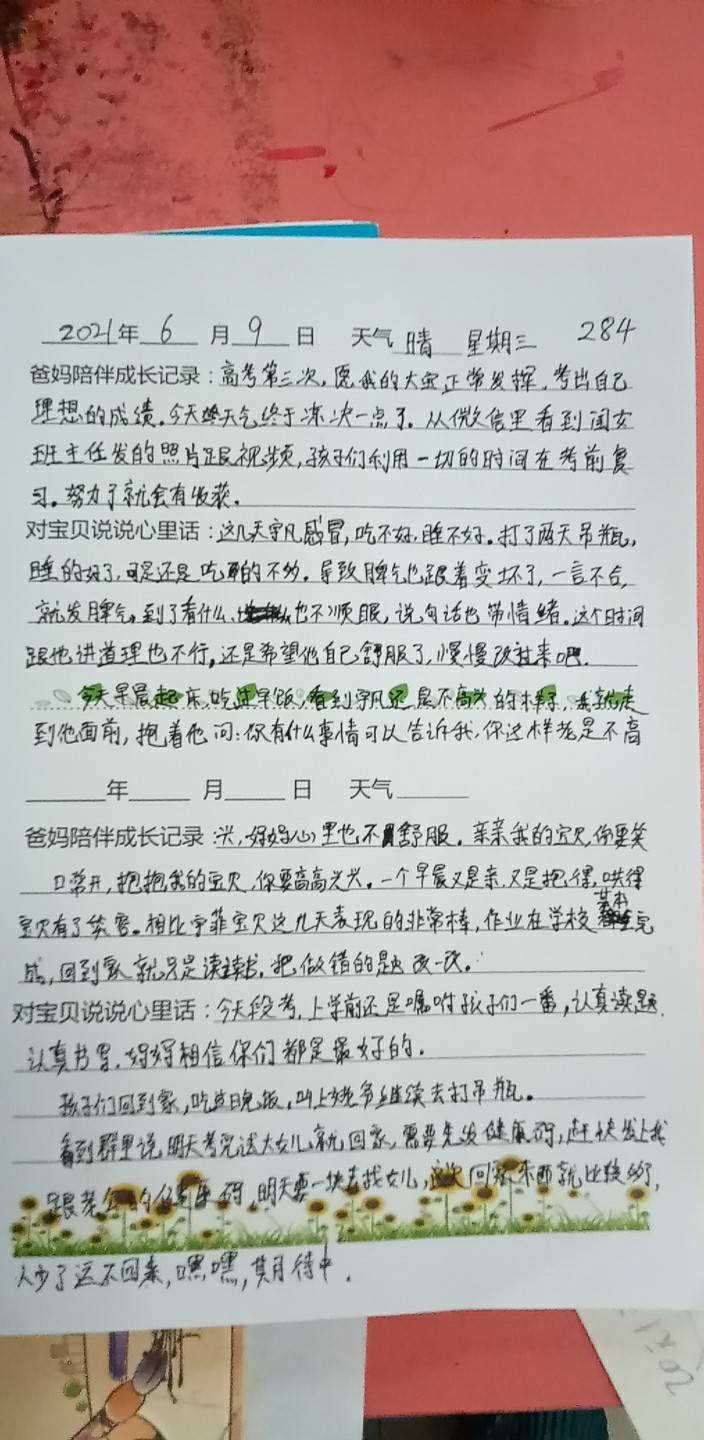 2021年 6 月 9 日 天气 晴 星期三 284
爸妈陪伴成长记录：高考第三次,愿我的大宝正常发挥,考出自己
理想的成绩。今天天气终于凉快一点了。从微信里看到闺女
班主任发的照片跟视频,孩子们利用一切的时间在考前复
习。努力了就会有收获。
对宝贝说说心里话：这几天宇凡感冒,吃不好,睡不好。打了两天吊瓶,
睡的好了,可是还是吃的不多。导致脾气也跟着变坏了,一言不合,
就发脾气,到了看什么也不顺眼,说句话也带情绪。这个时间
跟他讲道理也不行,还是希望他自己舒服了,慢慢改过来吧.
今天早晨起床,吃过早饭,看到宇凡还是不高兴的样子,我就走
到他面前,抱着他问:你有什么事情可以告诉我,你这样老是不高
年 月 日 天气
爸妈陪伴成长记录：兴,妈妈心里也不舒服。亲亲我的宝贝,你要笑
口常开,抱抱我的宝贝,你要高高兴兴。一个早晨又是亲,又是抱得,哄得
宝贝有了笑容。相比宇菲宝贝这几天表现的非常棒,作业在学校基本完
成,回到家就只是读读书,把做错的题改一改。
对宝贝说说心里话：今天段考,上学前还是嘱咐孩子们一番,认真读题.
认真书写.妈妈相信你们都是最好的.
孩子们回到家,吃过晚饭,叫上姥爷继续去打吊瓶。
看到群里说明天考完试大女儿就回家,需要先发健康码,赶快发上我
跟老公的健康码,明天要一块去找女儿,这次回家东西就比较多了,
人少了运不回来,嘿嘿,期待中.